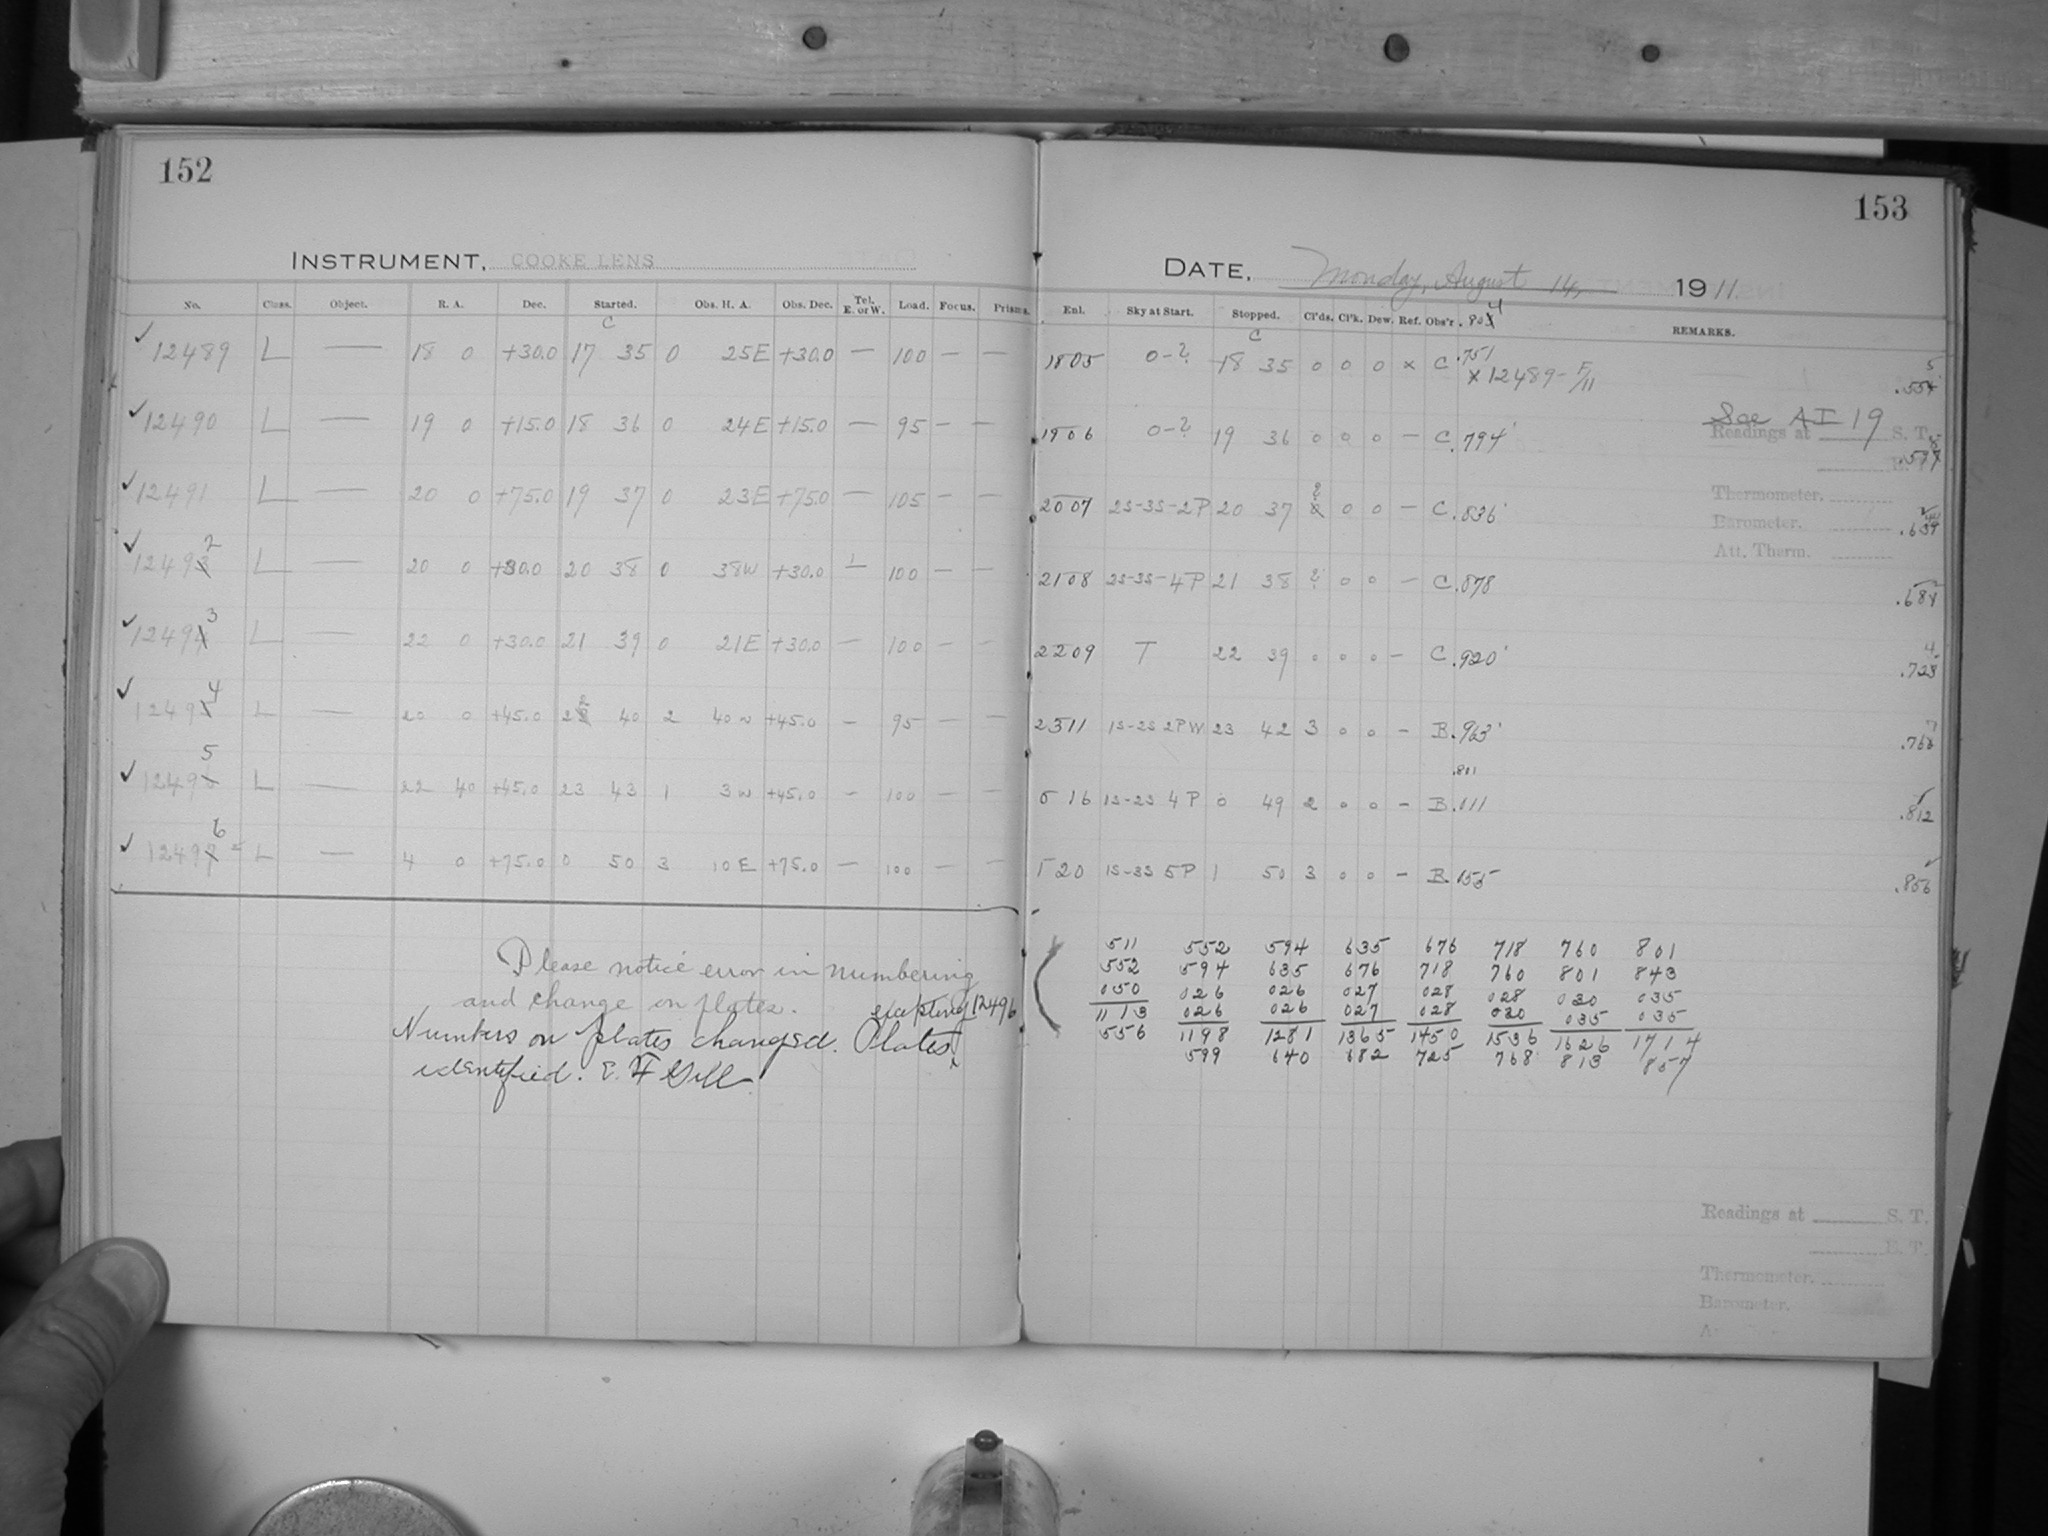 152
INSTRUMENT, COOKE LENS
No. Class. Object. R. A. Dec. Started. Obs. H. A. Obs. Dec. Tel. E. or W. Load. Focus. Prisms.
C
✓ 12489 L — 18 0 +30.0 17 35 0 25E +30.0 — 100 — —
✓ 12490 L — 19 0 +15.0 18 36 0 24E +15.0 — 95 — —
✓ 12491 L — 20 0 +75.0 19 37 0 23E +75.0 — 105 — —
✓ 12492 L — 20 0 +30.0 20 38 0 38W +30.0 — 100 — —
✓ 12493 L — 22 0 +30.0 21 39 0 21E +30.0 — 100 — —
✓ 12494 L — 20 0 +45.0 22 40 2 40W +45.0 — 95 — —
✓ 12495 L — 22 40 +45.0 23 43 1 3W +45.0 — 100 — —
✓ 12496 L — 4 0 +75.0 0 50 3 10E +75.0 — 100 — —
Please notice error in numbering
and change on plates.
excepting 12496
Numbers on plates changed. Plates
identified. E. F Gill
153
DATE, Monday, August 14, 1911.
Enl. Sky at Start. Stopped. Cl'ds. Cl'k. Dew. Ref. Obs'r. .804 REMARKS.
C
1805 0-? 18 35 0 0 0 x C .751
x 12489-F/11 .555
See AI 19
1906 0-? 19 36 0 0 0 — C .794
Readings at S. T.
2007 2S-3S-2P 20 37 ? 0 0 — C .836
Thermometer.
Barometer.
Att. Therm.
2108 2S-3S-4P 21 38 ? 0 0 — C .878
2209 T 22 39 0 0 0 — C .920 .724
2311 1S-2S 2PW 23 42 3 0 0 — B .963 .767
.801
0 16 1S-2S 4P 0 49 2 0 0 — B .011 .812
1 20 1S-3S 5P 1 50 3 0 0 — B .055 .856
511 552 594 635 676 718 760 801
552 594 635 676 718 760 801 843
050 026 026 027 028 028 030 035
1113 026 026 027 028 030 035 035
556 1198 1281 1365 1450 1536 1626 1714
599 640 682 725 768 813 857
Readings at S. T.
E. T.
Thermometer.
Barometer.